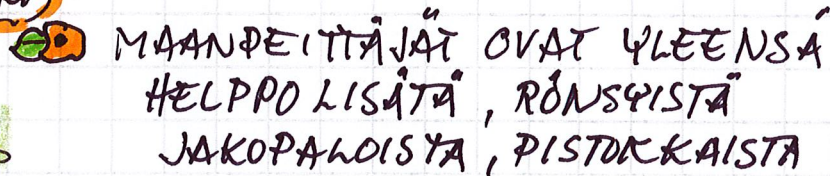 MAANPEITTÄJÄT OVAT YLEENSÄ
HELPPO LISÄTÄ, RÖNSYISTÄ
JAKOPALOISTA, PISTOKKAISTA